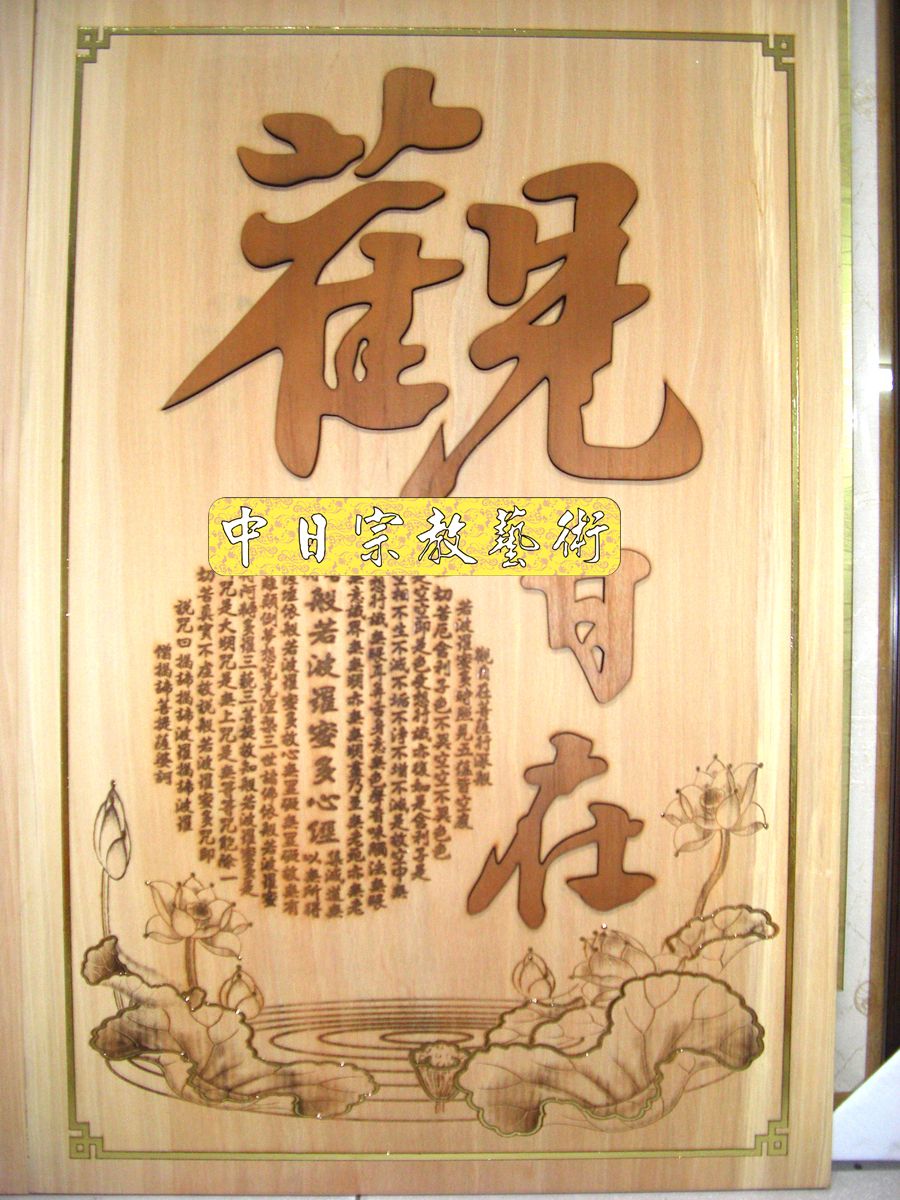 觀自在
中日宗教藝術
觀自在菩薩行深般
若波羅蜜多時照見五蘊皆空度
切苦厄舍利子色不異空空不異色色
空空即是色受想行識亦復如是舍利子是
相不生不滅不垢不淨不增不減是故空中無
想行識無眼耳鼻舌身意無色聲香味觸法無眼
無意識界無無明亦無無明盡乃至無老死亦無老
集滅道無
般若波羅蜜多心經
以無所得
薩埵依般若波羅蜜多故心無罣礙無罣礙故無有
離顛倒夢想究竟涅槃三世諸佛依般若波羅蜜
阿耨多羅三藐三菩提故知般若波羅蜜多是
咒是大明咒是無上咒是無等等咒能除一
切苦真實不虛故說般若波羅蜜多咒即
說咒曰揭諦揭諦波羅揭諦波羅
僧揭諦菩提薩婆訶